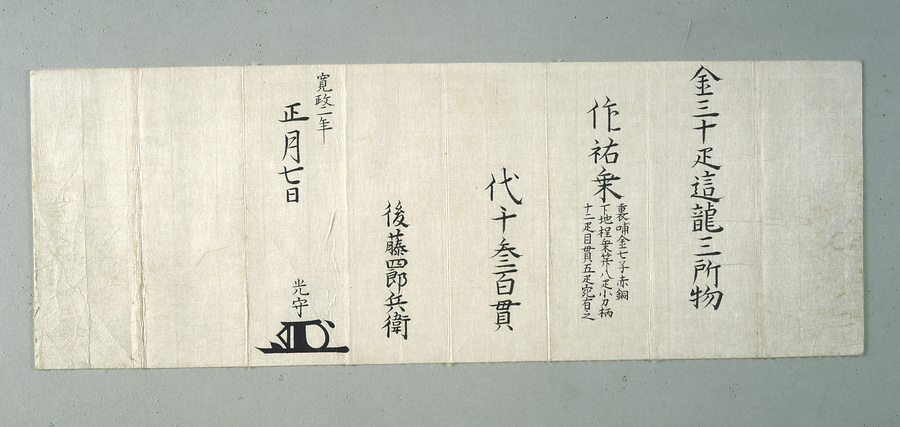 金三十疋這龍三所物
作祐乗
裏哺金七子赤銅
下地程乗笄八疋小刀柄
十二疋目貫五疋宛有之
代千叁百貫
後藤四郎兵衛
寛政二年
正月七日
光守